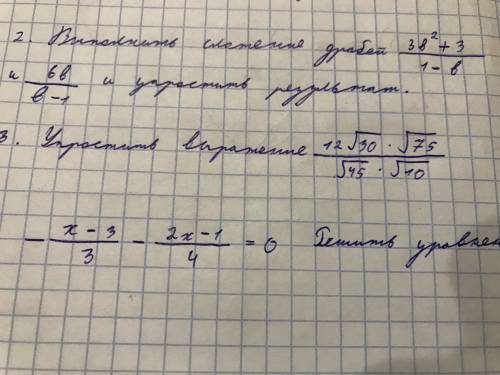 2. Выполнить сложение дробей (3в² + 3)/(1 - в)
и 6в/(в - 1) и упростить результат.
3. Упростить выражение (12√30 · √75)/(√45 · √10)
- (x - 3)/3 - (2x - 1)/4 = 0 Решить уравнен